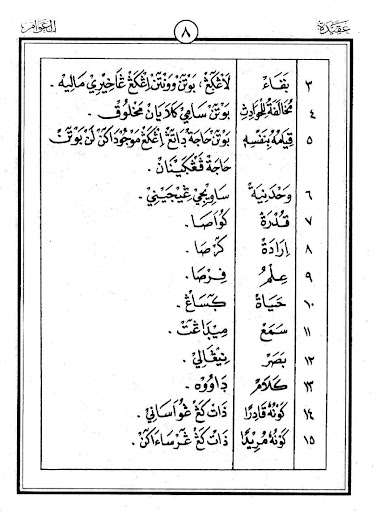 عقيدة ٨ العوام
٣ بَقَاءْ لَاڠْكَڠْ، بَوْتَنْ وَوْنْتَنْ اِڠْكَڠْ ڠَاخِيْرِيْ مَالِيْهْ .
٤ مُخَالَفَةُ لِلْحَوَادِثِ بَوْتَنْ سَامِيْ كَلَايَانْ مَخْلُوْقْ .
٥ قِيَامُهُ بِنَفْسِهِ بَوْتَنْ حَاجَةْ دَاتَڠْ اِڠْكَڠْ مَوْجُوْدَاكَنْ لَنْ بَوْتَنْ
حَاجَةْ ڤَڠْڮَيْنَانْ .
٦ وَحْدَنِيَةْ سَاوِيْجِيْ ڠَيْجَيْنِيْ .
٧ قُدْرَةْ كُوَاصَا .
٨ اِرَادَةْ كَرْصَا .
٩ عِلْمُ فِرْصَا .
١٠ حَيَاةْ ڮَسَاڠْ .
١١ سَمَعْ مِيْدَاڠَتْ .
١٢ بَصَرْ نِيْڠَالِيْ .
١٣ كَلَامْ دَاوُوْهْ .
١٤ كَوْنُهُ قَادِرًا ذَاتْ كَڠْ ڠُوَاسَانِيْ .
١٥ كَوْنُهُ مُرِيْدًا ذَاتْ كَڠْ ڠَرْسَاءَاكَنْ .